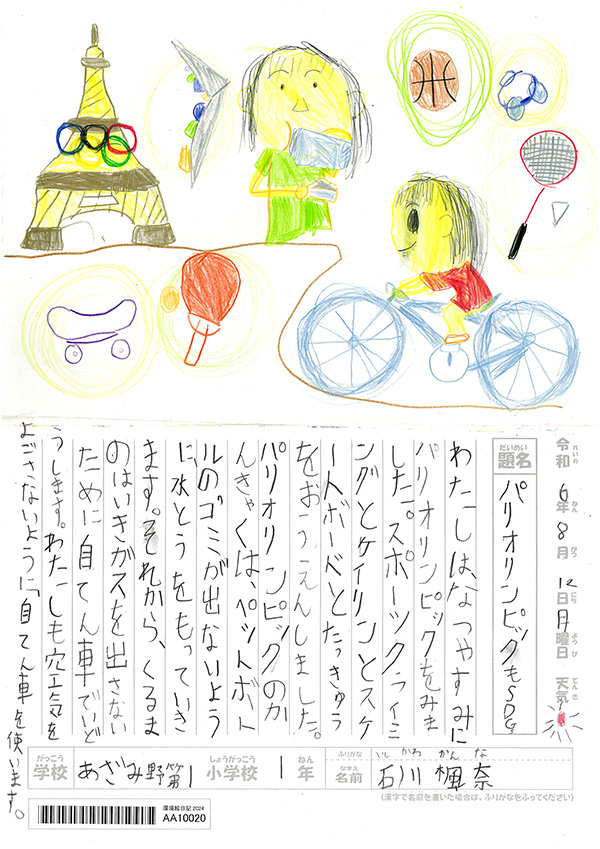 令和6年8月12日月曜日 天気
れいわ ねん がつ にち ようび てんき
だいめい
題名 パリオリンピックもSDGs
わたしは、なつやすみに
パリオリンピックをみま
した。スポーツクライミ
ングとケイリンとスケ
ートボードとたっきゅう
をおうえんしました。
パリオリンピックのか
んきゃくは、ペットボト
ルのゴミが出ないよう
に、水とうをもっていき
ます。それから、くるま
のはいきガスを出さない
ために自てん車でいど
うします。わたしも空気を
よごさないように、自てん車を使います。
がっこう しょうがっこう ねん ふりがな いしかわ かんな
学校 あざみ野第1 小学校 1年 なまえ 名前 石川 楓奈
(漢字で名前を書いた場合は、ふりがなをふってください)
環境絵日記 2024
AA10020